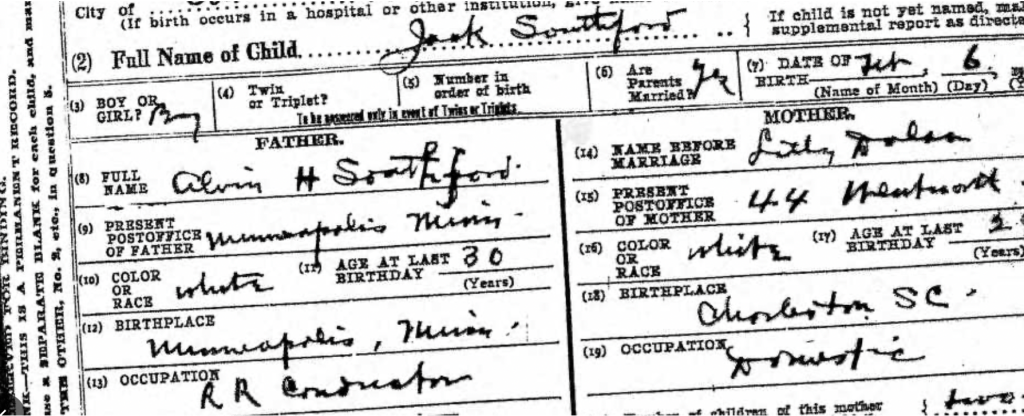 City of
(If birth occurs in a hospital or other institution, give
(2) Full Name of Child Jack Southford
{ If child is not yet named, make
supplemental report as directed
(3) BOY OR GIRL? Boy
(4) Twin or Triplet?
(5) Number in order of birth
To be answered only in event of Twins or Triplets
(6) Are Parents Married? Yes
(7) DATE OF BIRTH Feb, 6,
(Name of Month) (Day)
FATHER.
(8) FULL NAME Alvin H Southford.
(9) PRESENT POSTOFFICE OF FATHER Minneapolis Minn.
(10) COLOR OR RACE white
(11) AGE AT LAST BIRTHDAY 30
(Years)
(12) BIRTHPLACE
Minneapolis, Minn.
(13) OCCUPATION
R R Conductor
MOTHER.
(14) NAME BEFORE MARRIAGE
(15) PRESENT POSTOFFICE OF MOTHER 44 Wentworth
(16) COLOR OR RACE white
(17) AGE AT LAST BIRTHDAY 2
(Years)
(18) BIRTHPLACE
Charleston SC.
(19) OCCUPATION
Domestic
of children of this mother
{ two
RESERVED FOR BINDING.
INK—THIS IS A PERMANENT RECORD.
use a SEPARATE BLANK for each child, and mark
THE OTHER, No. 2, etc., in question 5.